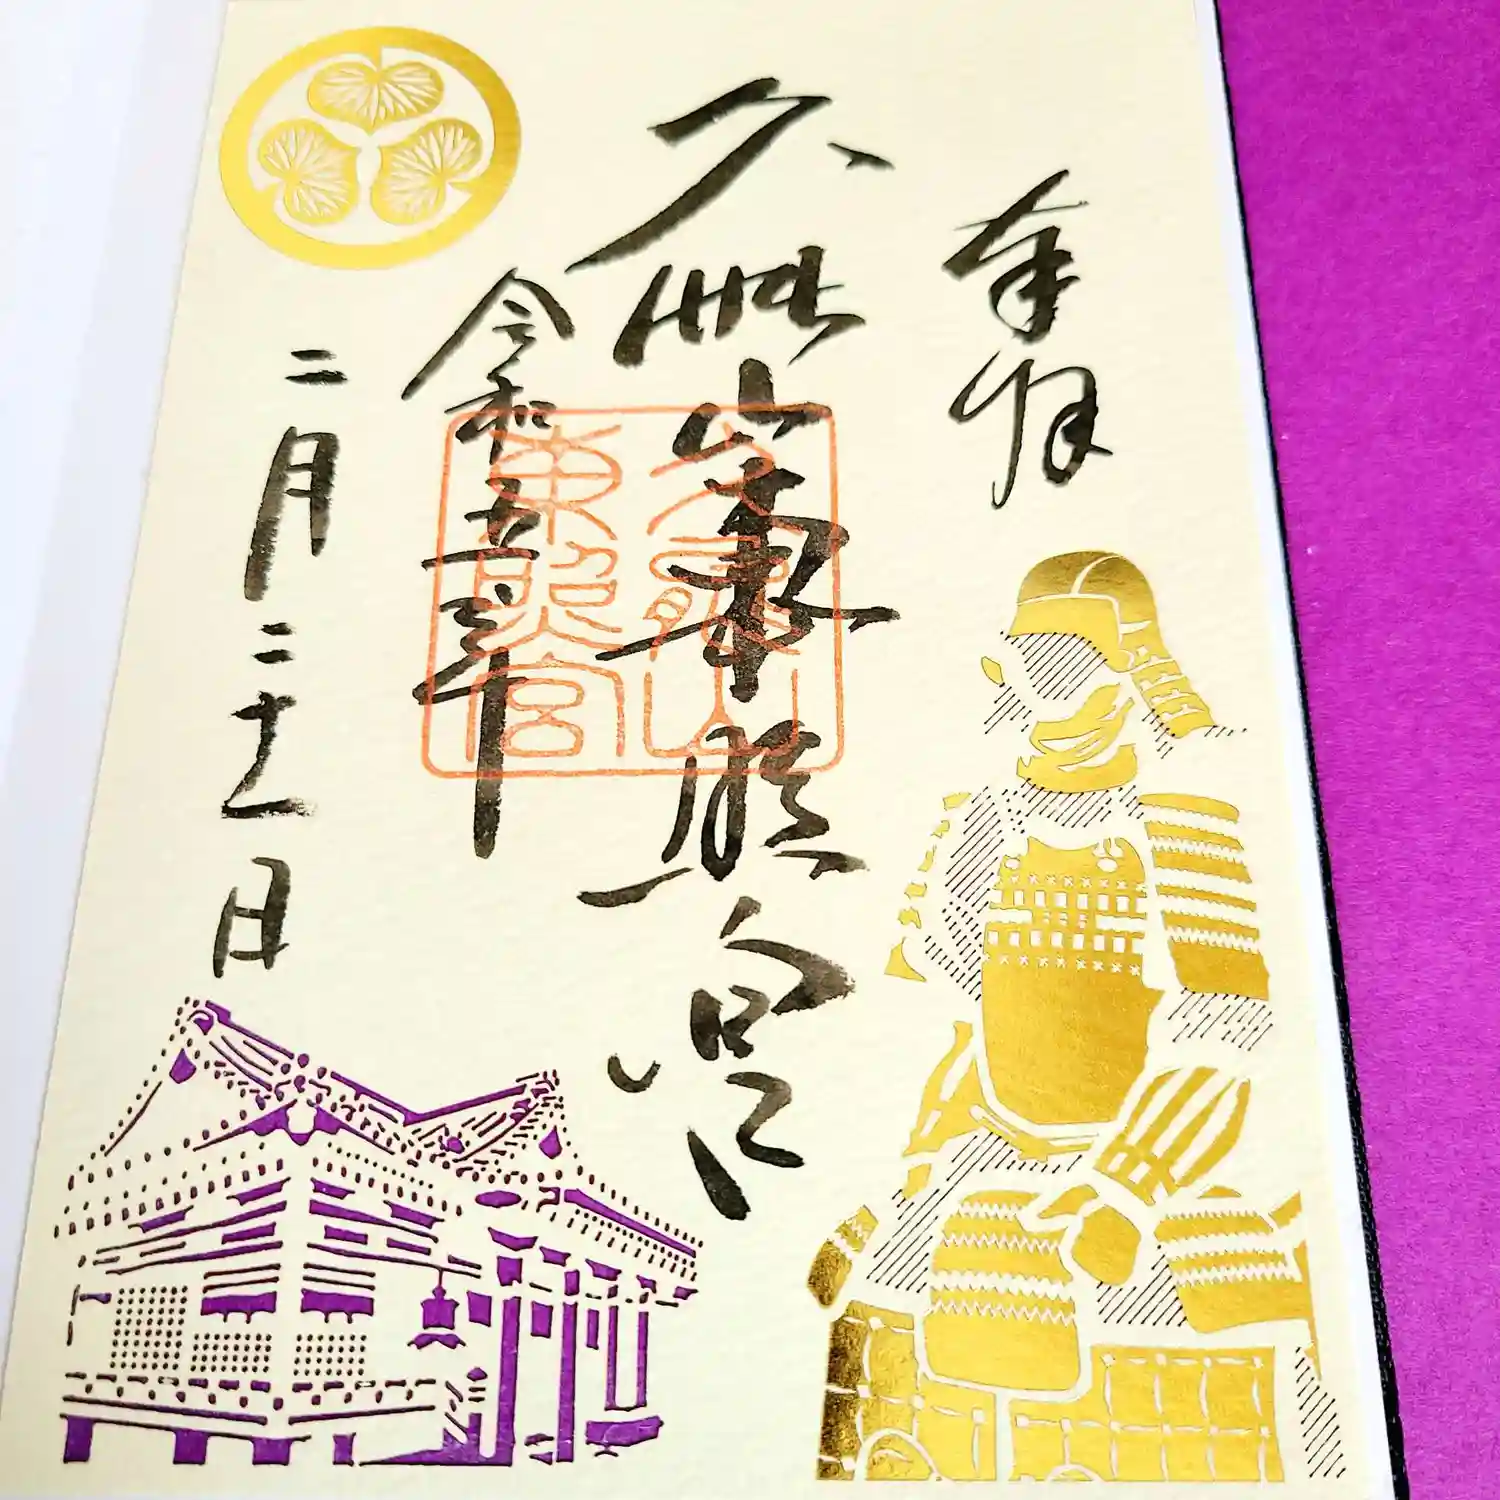 奉拝
久能山東照宮
令和五年
二月二十一日
久能山
東照宮